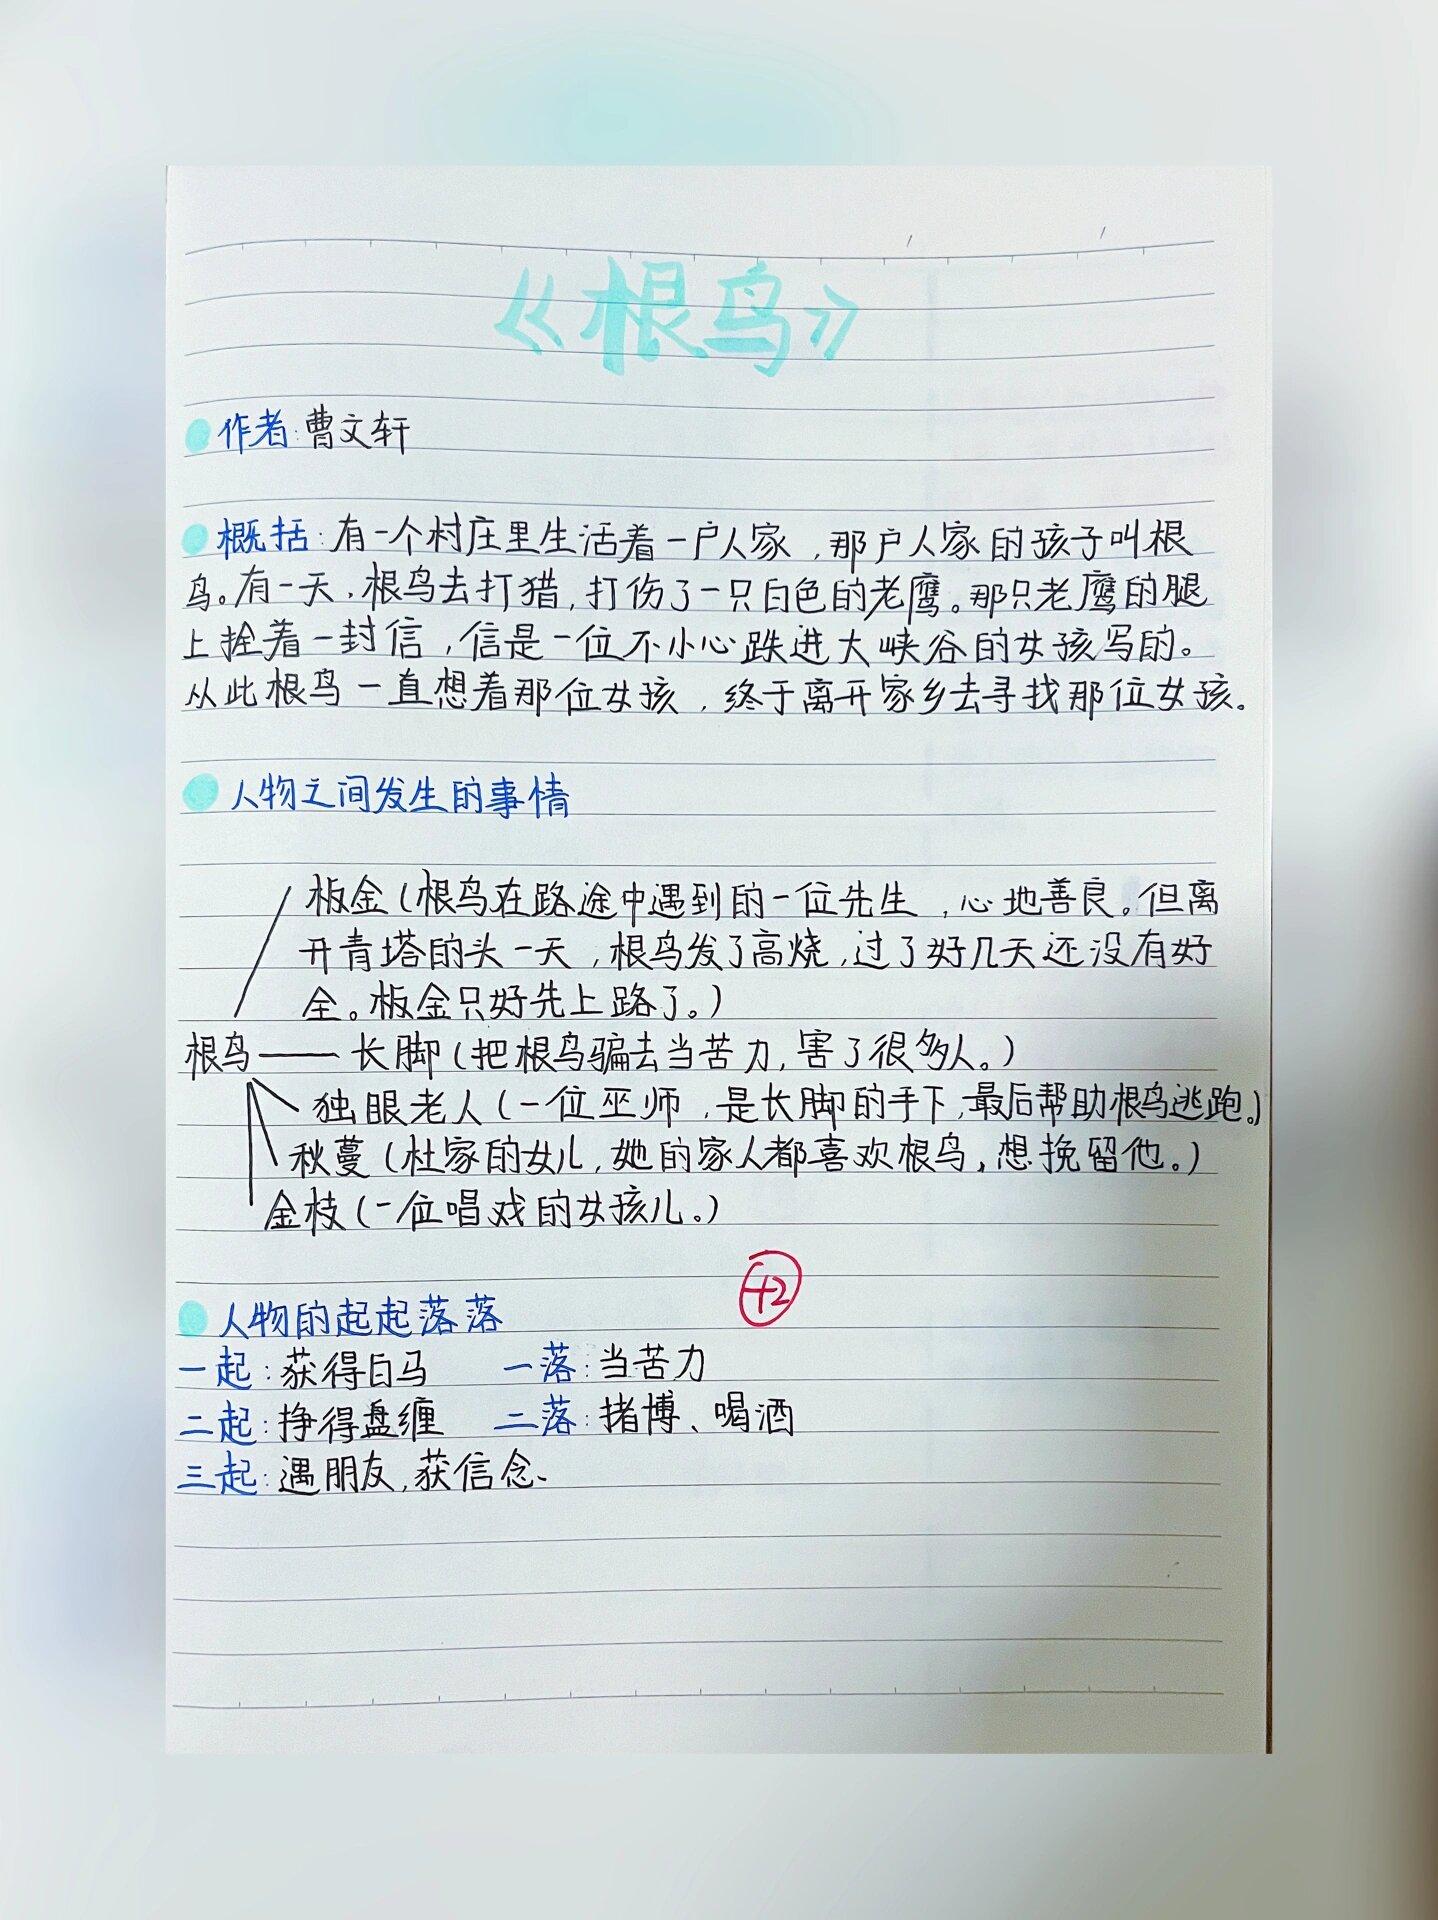 《根鸟》
作者:曹文轩
概括:有一个村庄里生活着一户人家,那户人家的孩子叫根
鸟。有一天,根鸟去打猎,打伤了一只白色的老鹰。那只老鹰的腿
上拴着一封信,信是一位不小心跌进大峡谷的女孩写的。
从此根鸟一直想着那位女孩,终于离开家乡去寻找那位女孩。
人物之间发生的事情
板金(根鸟在路途中遇到的一位先生,心地善良。但离
开青塔的头一天,根鸟发了高烧,过了好几天还没有好
全。板金只好先上路了。)
根鸟——长脚(把根鸟骗去当苦力,害了很多人。)
独眼老人(一位巫师,是长脚的手下,最后帮助根鸟逃跑。)
秋蔓(杜家的女儿,她的家人都喜欢根鸟,想挽留他。)
金枝(一位唱戏的女孩儿。)
+2
人物的起起落落
一起:获得白马 一落:当苦力
二起:挣得盘缠 二落:赌博、喝酒
三起:遇朋友,获信念、